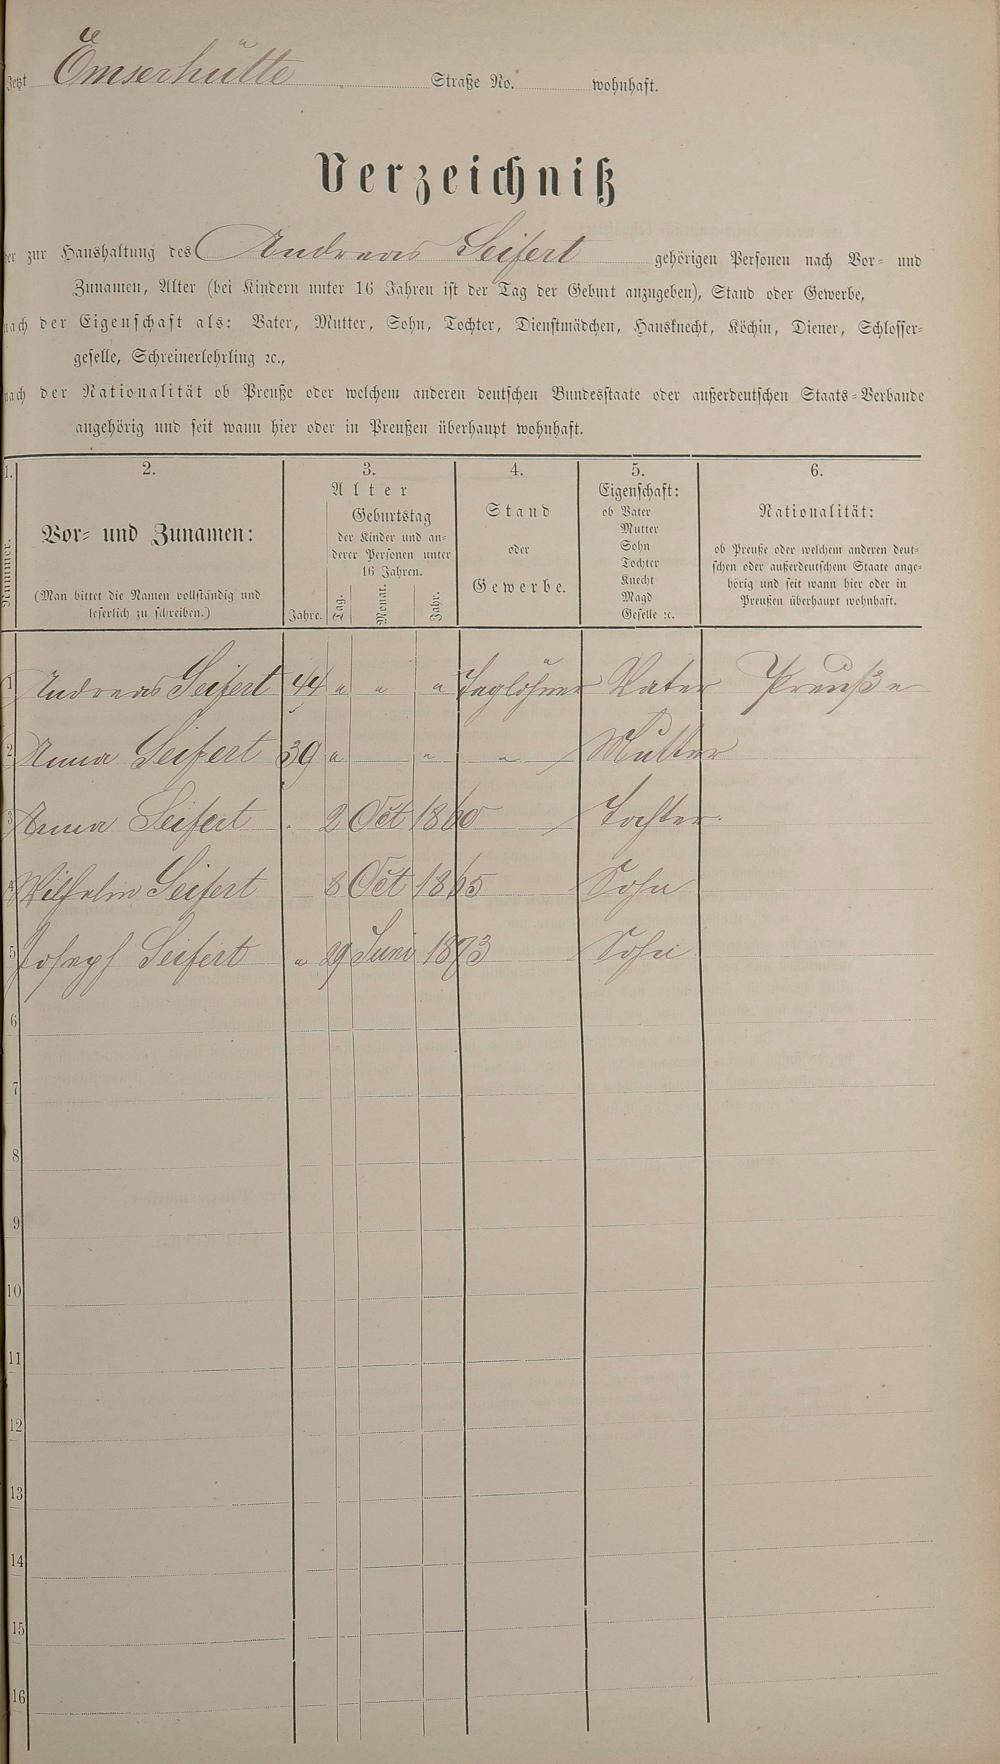 Jetzt Emserhütte Straße No. wohnhaft.
Verzeichniß
der zur Haushaltung des Andreas Seifert gehörigen Personen nach Vor= und
Zunamen, Alter (bei Kindern unter 16 Jahren ist der Tag der Geburt anzugeben), Stand oder Gewerbe,
nach der Eigenschaft als: Vater, Mutter, Sohn, Tochter, Dienstmädchen, Hausknecht, Köchin, Diener, Schlosser=
geselle, Schreinerlehrling ꝛc.,
nach der Nationalität ob Preuße oder welchem anderen deutschen Bundesstaate oder außerdeutschen Staats=Verbande
angehörig und seit wann hier oder in Preußen überhaupt wohnhaft.
1. 2. 3. 4. 5. 6.
Nummer.
Vor= und Zunamen:
(Man bittet die Namen vollständig und
leserlich zu schreiben.)
Alter
Jahre.
Geburtstag
der Kinder und an=
derer Personen unter
16 Jahren.
Tag. Monat. Jahr.
Stand
oder
Gewerbe.
Eigenschaft:
ob Vater
Mutter
Sohn
Tochter
Knecht
Magd
Geselle ꝛc.
Nationalität:
ob Preuße oder welchem anderen deut=
schen oder außerdeutschem Staate ange=
hörig und seit wann hier oder in
Preußen überhaupt wohnhaft.
1 Andreas Seifert 44 " " " Taglöhner Vater Preuße
2 Anna Seifert 39 " " " Mutter
3 Anna Seifert . 2 Oct 1860 Tochter.
4 Wilhelm Seifert 8 Oct 1865 Sohn
5 Joseph Seifert " 29 Juni 1873 Sohn
6
7
8
9
10
11
12
13
14
15
16